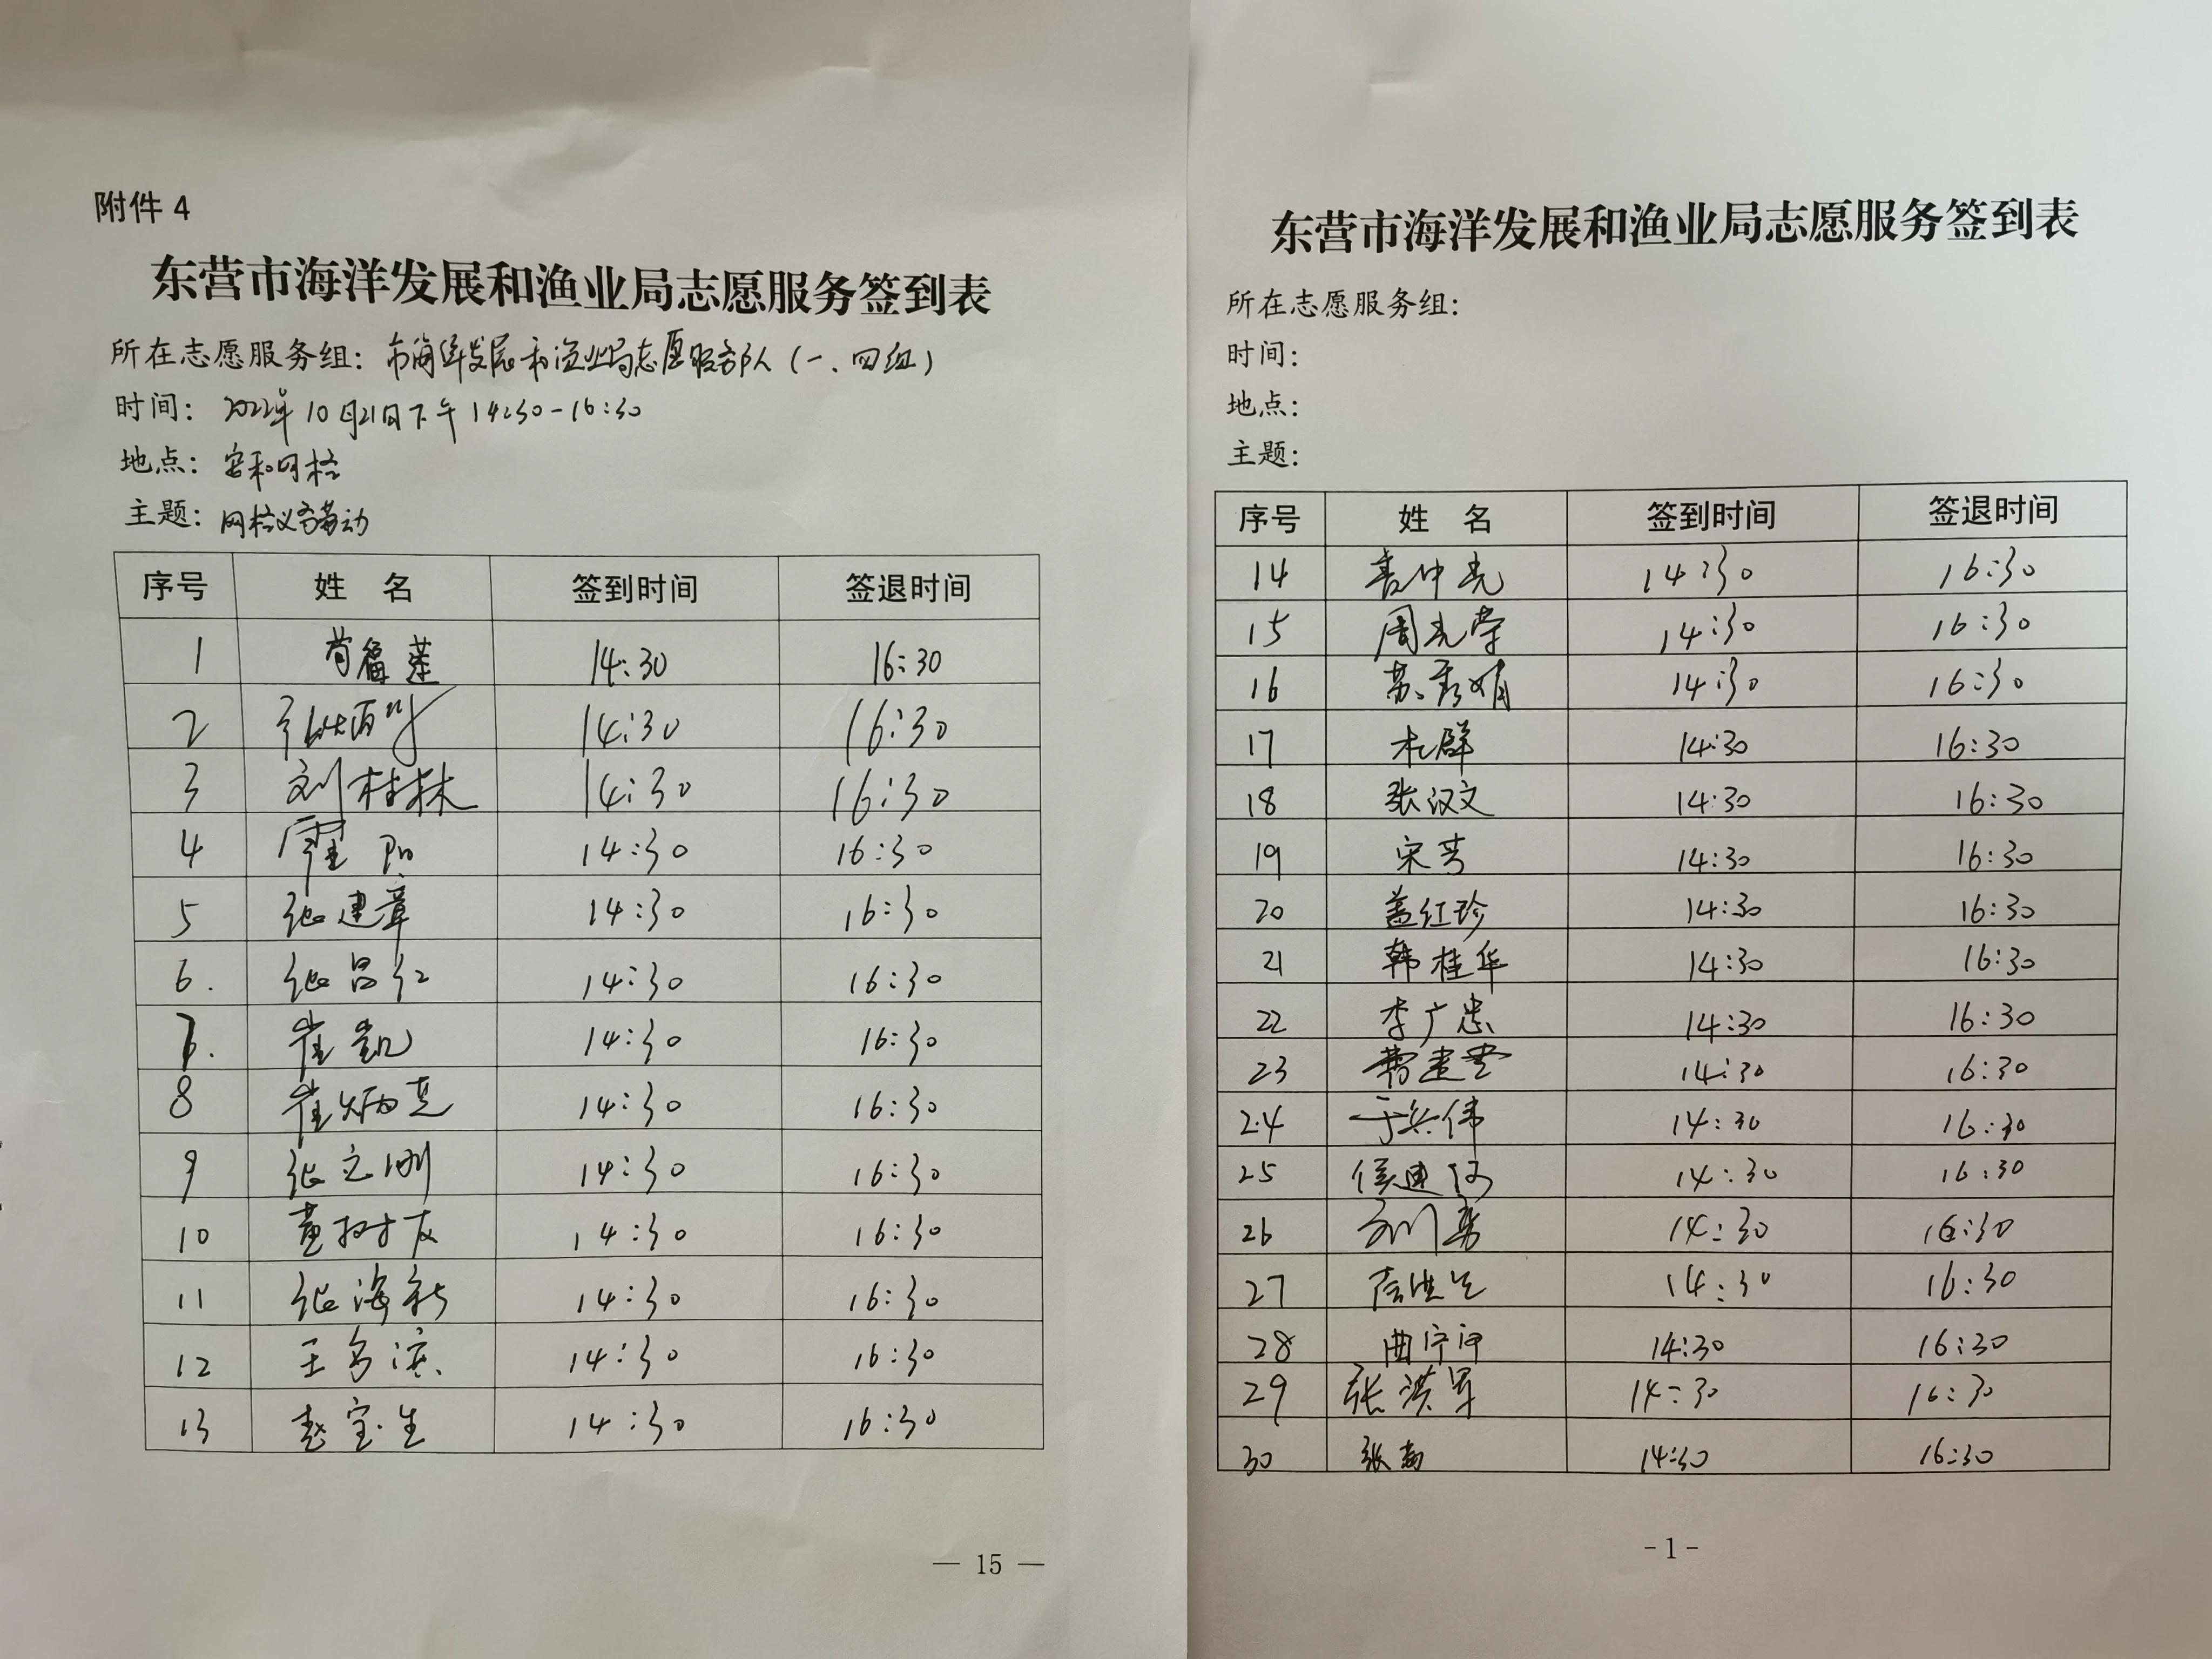 附件 4
东营市海洋发展和渔业局志愿服务签到表
所在志愿服务组：市海洋发展和渔业局志愿服务队（一、四组）
时间：2022年10月21日下午14:30-16:30
地点：安和网格
主题：网格义务劳动
序号 姓 名 签到时间 签退时间
1 14:30 16:30
2 14:30 16:30
3 刘桂林 14:30 16:30
4 14:30 16:30
5 张建章 14:30 16:30
6. 张昌红 14:30 16:30
7. 崔凯 14:30 16:30
8 崔炳 14:30 16:30
9 张立刚 14:30 16:30
10 黄树 14:30 16:30
11 张海新 14:30 16:30
12 王 滨 14:30 16:30
13 赵宝生 14:30 16:30
— 15 —
东营市海洋发展和渔业局志愿服务签到表
所在志愿服务组：
时间：
地点：
主题：
序号 姓 名 签到时间 签退时间
14 14:30 16:30
15 周光荣 14:30 16:30
16 苏秀娟 14:30 16:30
17 杜群 14:30 16:30
18 张汉文 14:30 16:30
19 宋芳 14:30 16:30
20 盖红珍 14:30 16:30
21 韩桂华 14:30 16:30
22 李广忠 14:30 16:30
23 14:30 16:30
24 于兴伟 14:30 16:30
25 侯迪 14:30 16:30
26 14:30 16:30
27 14:30 16:30
28 曲宁 14:30 16:30
29 张洪军 14:30 16:30
30 张 14:30 16:30
- 1 -